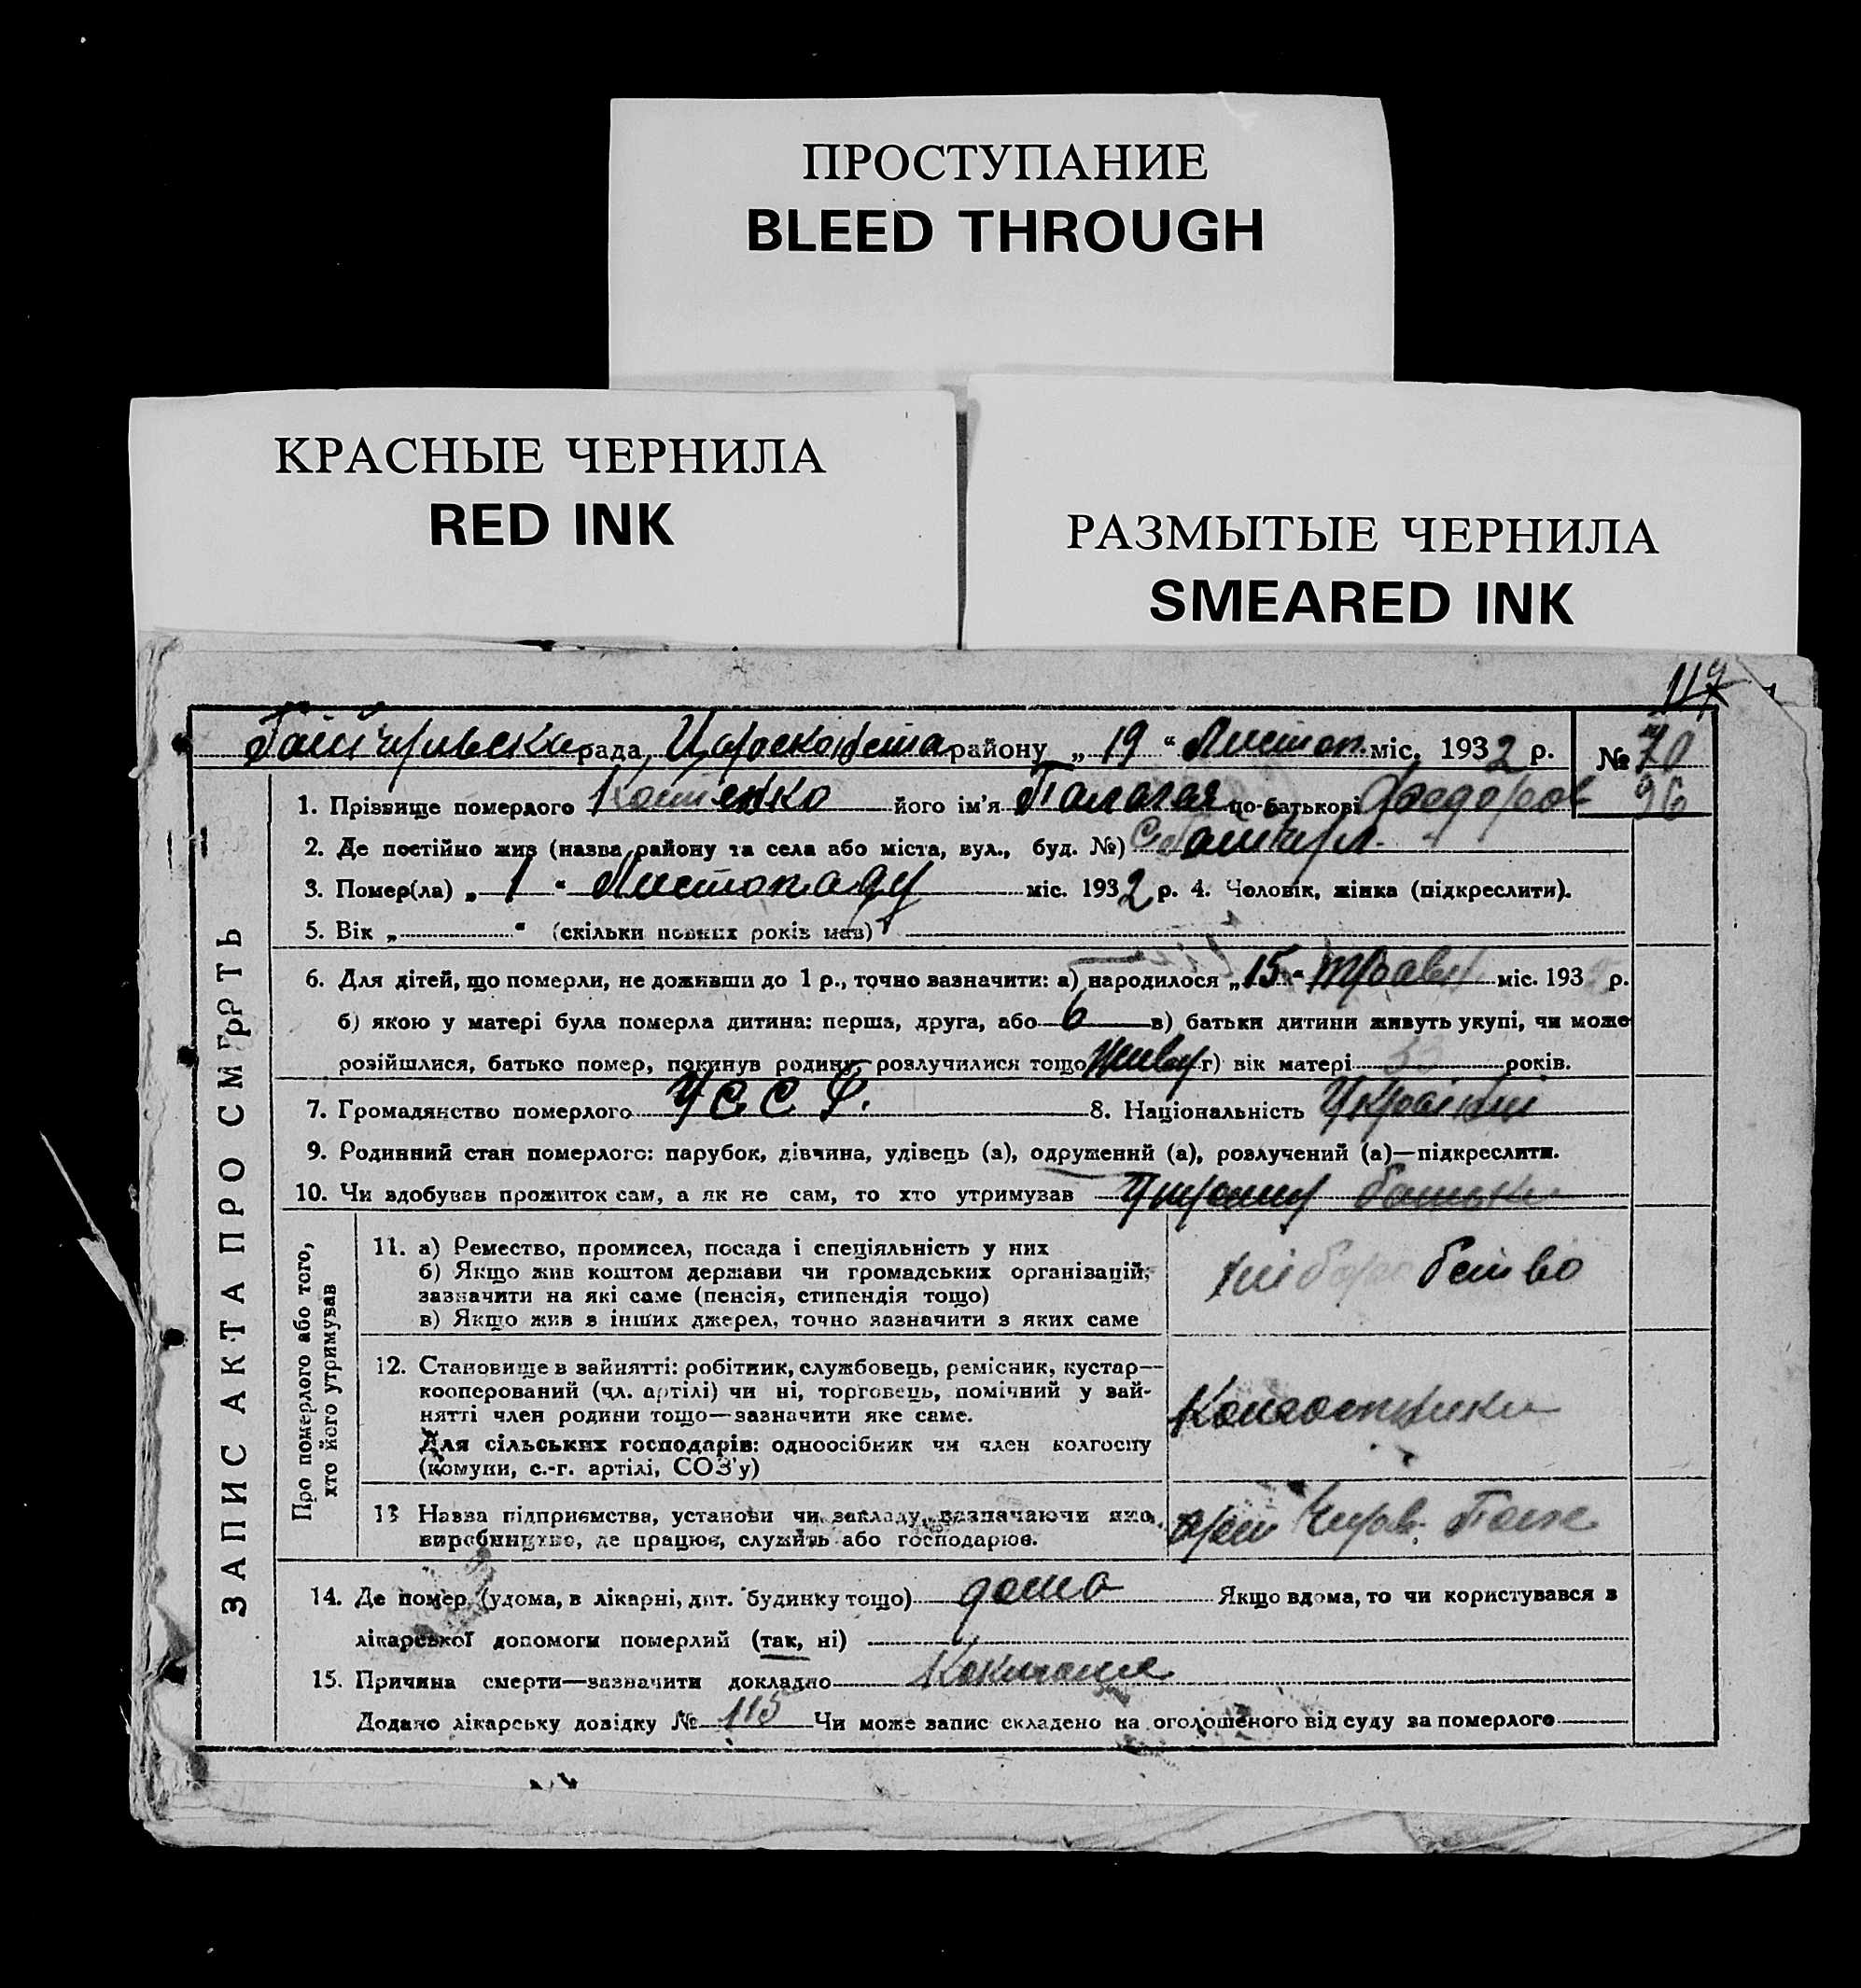 ПРОСТУПАНИЕ
BLEED THROUGH
КРАСНЫЕ ЧЕРНИЛА
RED INK
РАЗМЫТЫЕ ЧЕРНИЛА
SMEARED INK
рада району „ 19 “ Листоп. міс. 1932 р. №
1. Прізвище померлого його ім'я по-батькові Федоров
2. Де постійно жив (назва району та села або міста, вул., буд. №)
3. Помер(ла) „ 1 “ Листопаду міс. 1932 р. 4. Чоловік, жінка (підкреслити).
5. Вік „ “ (скільки повних років мав)
6. Для дітей, що померли, не доживши до 1 р., точно зазначити: а) народилося „ 15 “ міс. 193 р.
б) якою у матері була померла дитина: перша, друга, або 6 в) батьки дитини живуть укупі, чи може
розійшлися, батько помер, покинув родину, розлучилися тощо живуть г) вік матері років.
7. Громадянство померлого УССР. 8. Національність
9. Родинний стан померлого: парубок, дівчина, удівець (а), одружений (а), розлучений (а)—підкреслити.
10. Чи здобував прожиток сам, а як не сам, то хто утримував батьки
ЗАПИС АКТА ПРО СМЕРТЬ
Про померлого або того,
хто його утримував
11. а) Ремество, промисел, посада і спеціяльність у них
б) Якщо жив коштом держави чи громадських організацій,
зазначити на які саме (пенсія, стипендія тощо)
в) Якщо жив з інших джерел, точно зазначити з яких саме
хліборобство
12. Становище в зайнятті: робітник, службовець, ремісник, кустар—
кооперований (чл. артілі) чи ні, торговець, помічний у зай-
нятті член родини тощо—зазначити яке саме.
Для сільських господарів: одноосібник чи член колгоспу
(комуни, с.-г. артілі, СОЗ'у)
Колгоспники
13 Назва підприємства, установи чи закладу, зазначаючи яке
виробництво, де працює, служить або господарює.
14. Де помер (удома, в лікарні, дит. будинку тощо) дома Якщо вдома, то чи користувався з
лікарської допомоги померлий (так, ні)
15. Причина смерти—зазначити докладно
Додано лікарську довідку № 115 Чи може запис складено на оголошеного від суду за померлого